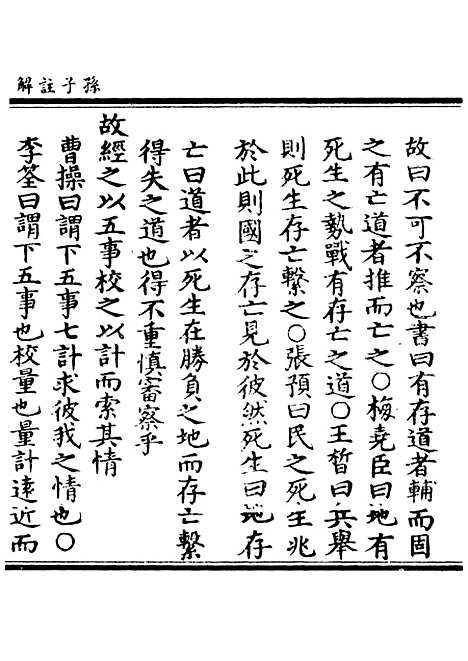 孫子註解
故曰不可不察也書曰有存道者輔而固
之有亡道者推而亡之〇梅堯臣曰地有
死生之勢戰有存亡之道〇王晳曰兵舉
則死生存亡繫之〇張預曰民之死生兆
於此則國之存亡見於彼然死生曰地存
亡曰道者以死生在勝負之地而存亡繫
得失之道也得不重慎審察乎
故經之以五事校之以計而索其情
曹操曰謂下五事七計求彼我之情也〇
李筌曰謂下五事也校量也量計遠近而